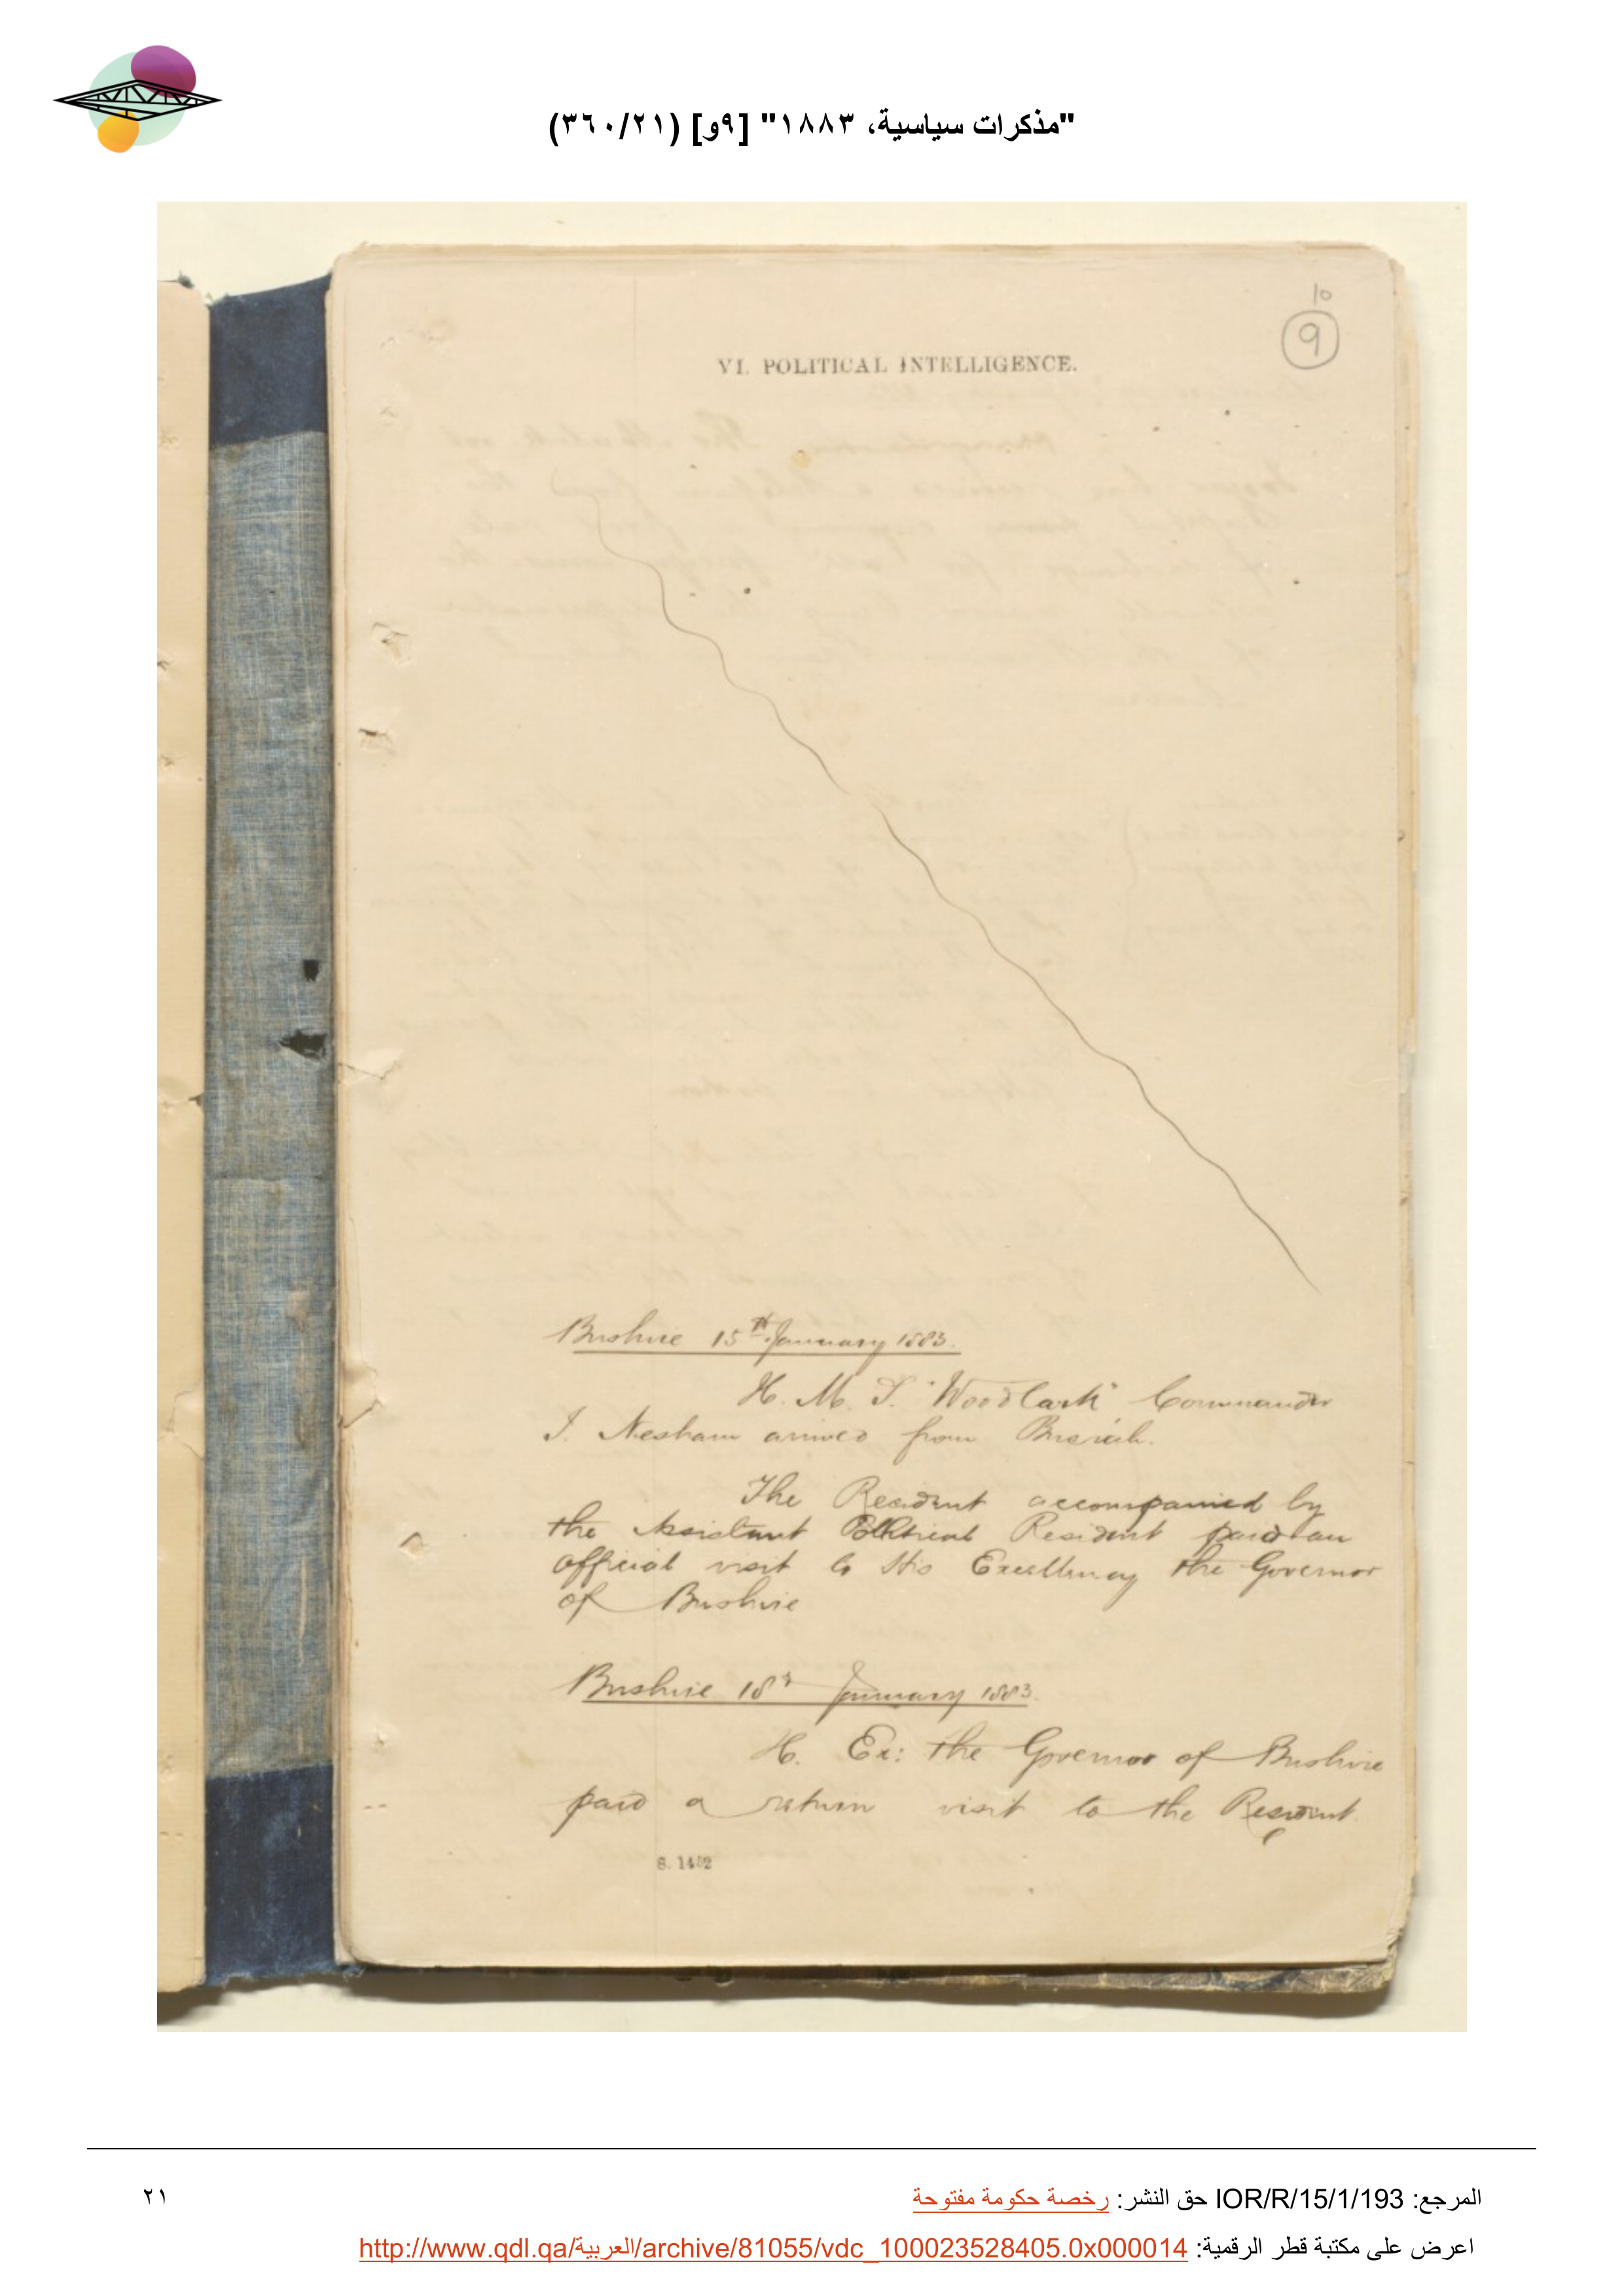 "مذكرات سياسية، ١٨٨٣" [٩و] (٣٦٠/٢١)
10
9
VI. POLITICAL INTELLIGENCE.
Bushire 15th January 1883.
H. M. S. "Woodlark" Commander
I. Nesham arrived from Busrah.
The Resident accompanied by
the Assistant Political Resident paid an
official visit to His Excellency the Governor
of Bushire
Bushire 18th January 1883.
H. Ex: the Governor of Bushire
paid a return visit to the Resident.
S. 1452
المرجع: IOR/R/15/1/193 حق النشر: رخصة حكومة مفتوحة
٢١
اعرض على مكتبة قطر الرقمية: http://www.qdl.qa/العربية/archive/81055/vdc_100023528405.0x000014